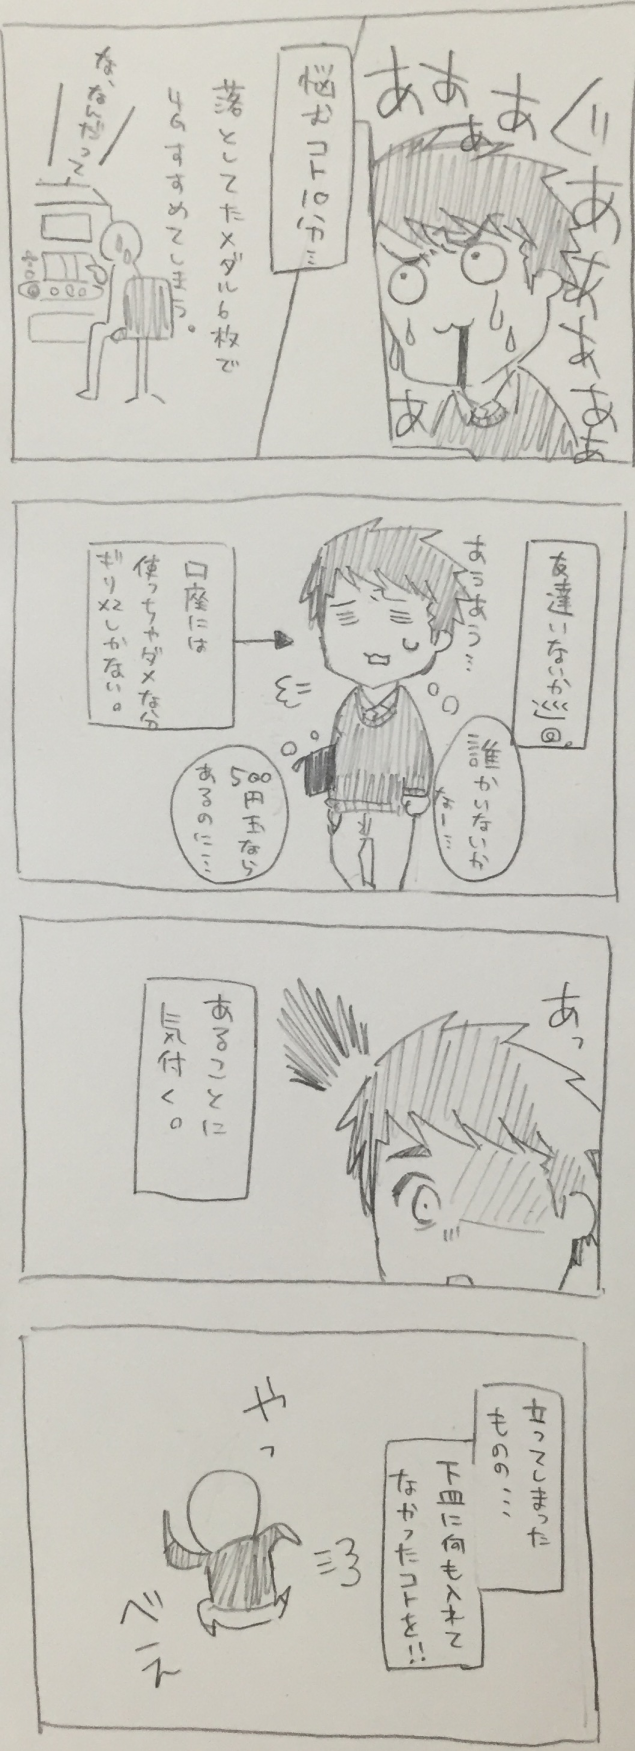 ぐああああああ
ああああ
あ
悩むコト10分…
落としてたメダル6枚で
4Gすすめてしまう。
な、なんだって
友達いないか巡回。
あうあう…
誰かいないか
なー…
口座には
使っちゃダメな分
ギリ×2しかない。
500
円玉なら
あるのに…
あっ
あることに
気付く。
立ってしまった
ものの…
下皿に何も入れて
なかったコトを!!
やっ
べー
え